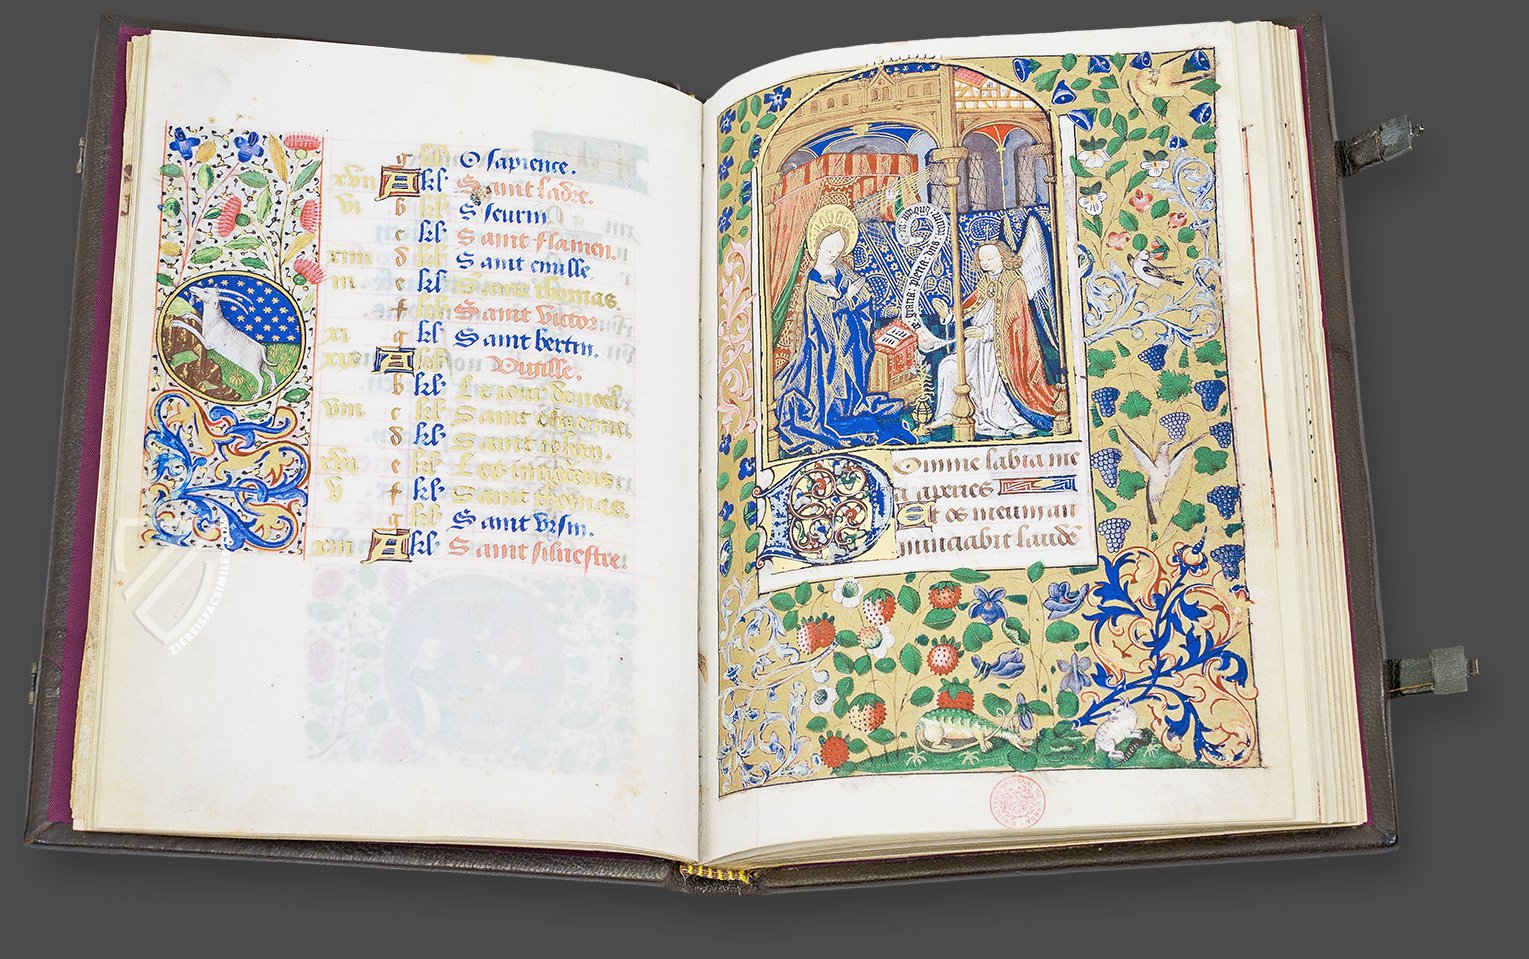 g kl O sapience.
xvii A kl Saint ladre.
vi b kl S seurin
c kl Saint flamen.
xiiii d kl Saint emille
iii e kl Saint thomas.
f kl Saint victor
xi g kl Saint bertin.
xix A kl Vigille.
b kl Le iour de noel.
viii c kl Saint estienne.
d kl Saint iehan.
xvi e kl Les innocens
v f kl Saint thomas.
g kl Saint vrsin.
xiii A kl Saint siluestre.
ZIEREIS FACSIMILE
gracia plena dns
Domine labia me
a aperies
Et os meum an
nunciabit laudē